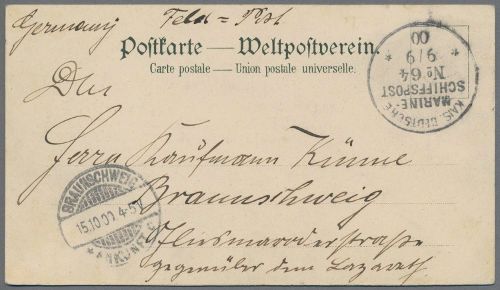 Germany Feld = Post
Postkarte — Weltpostverein.
Carte postale — Union postale universelle.
KAIS. DEUTSCHE
MARINE-
SCHIFFSPOST
No 64
9/9
00
Herrn Kaufmann Künne
Braunschweig
BRAUNSCHWEIG
15.10.00 4-5N
ANKUNFT
Gliesmaroderstraße
gegenüber dem Lazareth